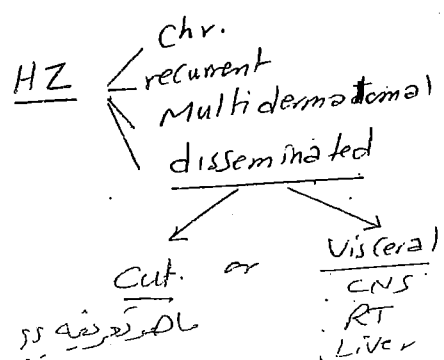 Chr.
HZ
recurrent
Multidermatomal
disseminated
Cut. or Visceral
CNS
ماهو تعريفه ؟؟
RT
Liver